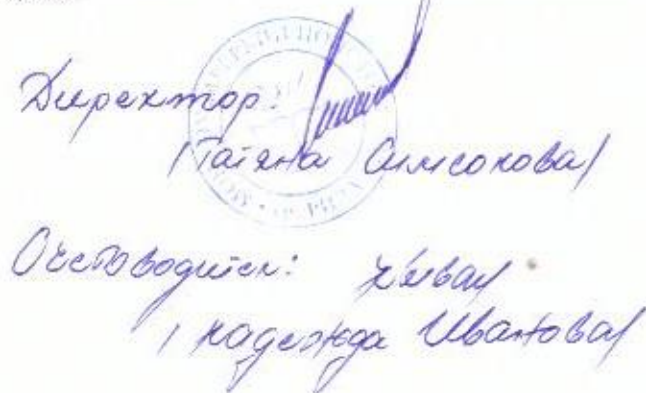 Директор:
/Татяна Симсонова/
Счетоводител:
/Надежда Иванова/